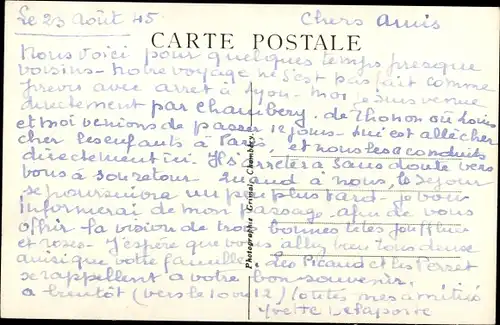 Le 23 Août 45.
Chers Amis
CARTE POSTALE
Nous voici pour quelques temps presque
voisins - Notre voyage ne s'est pas fait comme
prévu avec arrêt à Lyon - moi je suis venue
directement par Chambery. de Thonon où Louis
et moi venions de passer 12 jours - Lui est allé cher
cher les enfants à Paris, et nous les a conduits
directement ici. Il s'arrêtera sans doute vers
vous à son retour. Quand à nous, le séjour
se poursuivra un peu plus tard - je vous
informerai de mon passage, afin de vous
offrir la vision de trois bonnes têtes joufflues
et roses - J'espère que vous allez bien tous deux
ainsi que votre famille. Les Picaud et les Perret
se rappellent à votre bon souvenir.
a bientôt (vers le 10 ou 12) toutes mes amitiés
Yvette Delaporte
Photographie Grimal, Chambéry